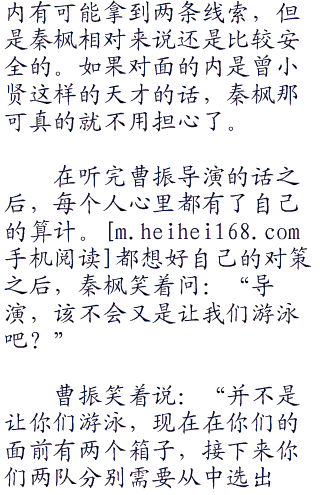 内有可能拿到两条线索，但
是秦枫相对来说还是比较安
全的。如果对面的内是曾小
贤这样的天才的话，秦枫那
可真的就不用担心了。
在听完曹振导演的话之
后，每个人心里都有了自己
的算计。[m.heihei168.com
手机阅读]都想好自己的对策
之后，秦枫笑着问：“导
演，该不会又是让我们游泳
吧？”
曹振笑着说：“并不是
让你们游泳，现在在你们的
面前有两个箱子，接下来你
们两队分别需要从中选出